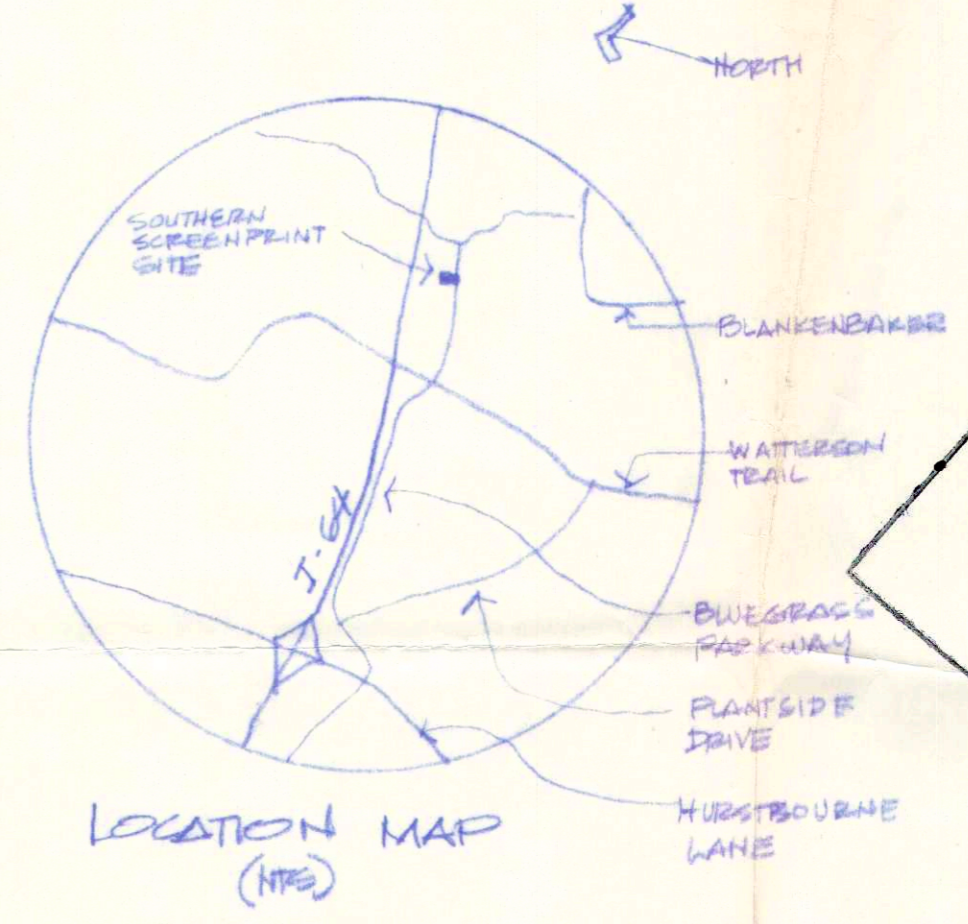 NORTH
SOUTHERN
SCREENPRINT
SITE
BLANKENBAKER
WATTERSON
TRAIL
I-64
BLUEGRASS
PARKWAY
PLANTSIDE
DRIVE
HURSTBOURNE
LANE
LOCATION MAP
(NTS)